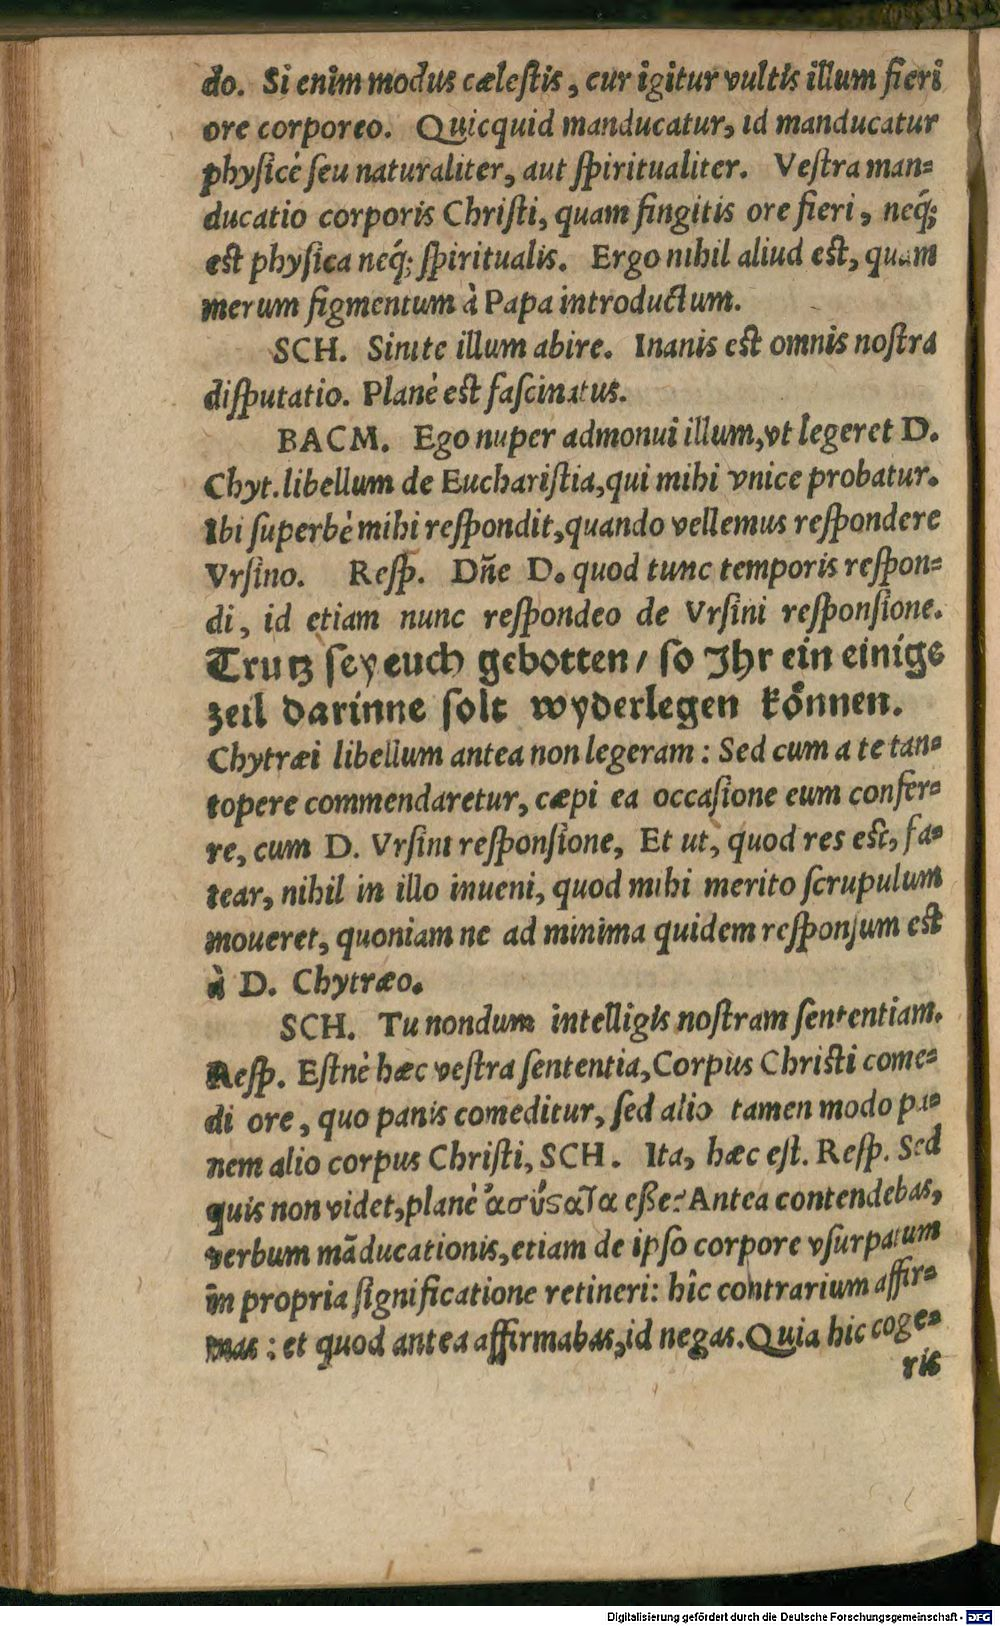 do. Si enim modus cælestis, cur igitur vultis illum fieri
ore corporeo. Quicquid manducatur, id manducatur
physicè seu naturaliter, aut spiritualiter. Vestra man=
ducatio corporis Christi, quam fingitis ore fieri, neq́;
est physica neq́; spiritualis. Ergo nihil aliud est, quam
merum figmentum à Papa introductum.
SCH. Sinite illum abire. Inanis est omnis nostra
disputatio. Planè est fascinatus.
BACM. Ego nuper admonui illum, vt legeret D.
Chyt. libellum de Eucharistia, qui mihi vnice probatur.
Ibi superbè mihi respondit, quando vellemus respondere
Vrsino. Resp. Dñe D. quod tunc temporis respon=
di, id etiam nunc respondeo de Vrsini responsione.
Trutz sey euch gebotten / so Jhr ein einige
zeil darinne solt wyderlegen koͤnnen.
Chytræi libellum antea non legeram: Sed cum a te tan=
topere commendaretur, cæpi ea occasione eum confer=
re, cum D. Vrsini responsione, Et ut, quod res est, fa=
tear, nihil in illo inueni, quod mihi merito scrupulum
moueret, quoniam ne ad minima quidem responsum est
à D. Chytræo.
SCH. Tu nondum intelligis nostram sententiam.
Resp. Estnè hæc vestra sententia, Corpus Christi come=
di ore, quo panis comeditur, sed alio tamen modo pa=
nem alio corpus Christi, SCH. Ita, hæc est. Resp. Sed
quis non videt, planè ἀσύςατα eße? Antea contendebas,
verbum mãducationis, etiam de ipso corpore vsurpatum
in propria significatione retineri: hîc contrarium affir=
mas: et quod antea affirmabas, id negas. Quia hic coge=
ris
Digitalisierung gefördert durch die Deutsche Forschungsgemeinschaft - DFG